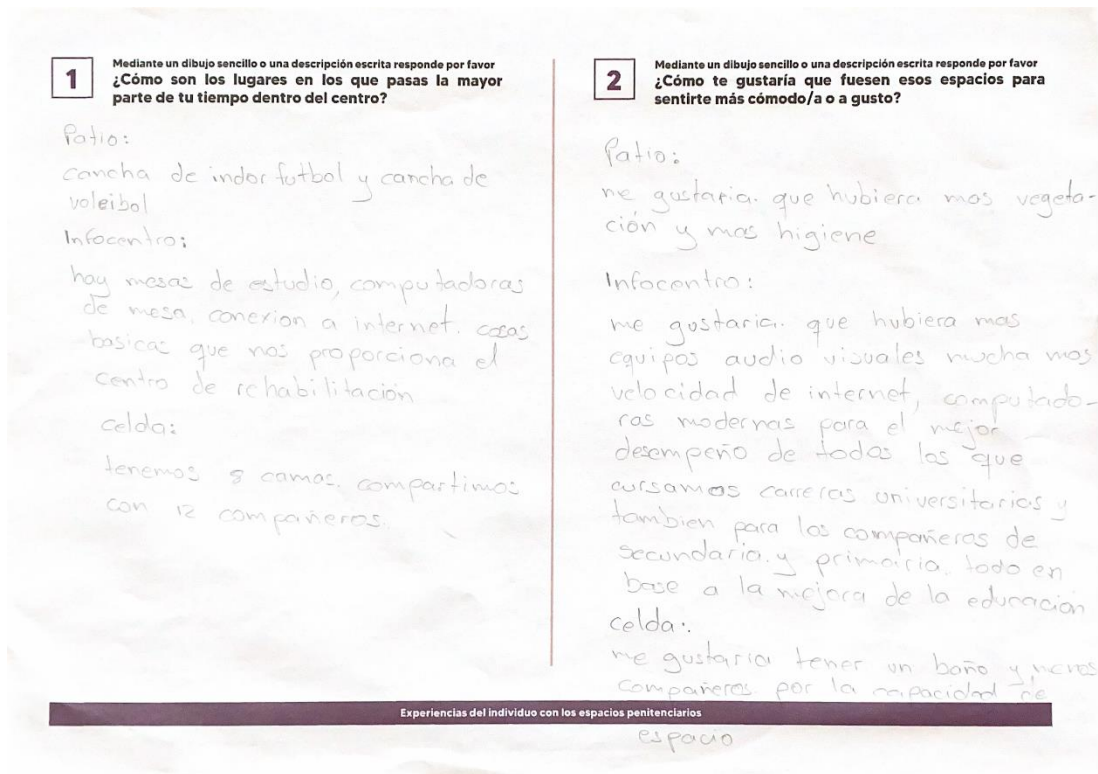 1
Mediante un dibujo sencillo o una descripción escrita responde por favor
¿Cómo son los lugares en los que pasas la mayor
parte de tu tiempo dentro del centro?
Patio:
cancha de indor futbol y cancha de
voleibol
Infocentro:
hay mesas de estudio, computadoras
de mesa. conexion a internet. cosas
basicas que nos proporciona el
centro de rehabilitación
celda:
tenemos 8 camas. compartimos
con 12 compañeros.
2
Mediante un dibujo sencillo o una descripción escrita responde por favor
¿Cómo te gustaría que fuesen esos espacios para
sentirte más cómodo/a o a gusto?
Patio:
me gustaria. que hubiera mas vegeta-
ción y mas higiene
Infocentro:
me gustaria. que hubiera mas
equipos audio visuales mucha mas
velocidad de internet, computado-
ras modernas para el mejor
desempeño de todos los que
cursamos carreras universitarias y
tambien para los compañeros de
secundaria. y primairia. todo en
base a la mejora de la educación
celda:.
me gustaria tener un baño y menos
compañeros por la capacidad de
espacio
Experiencias del individuo con los espacios penitenciarios